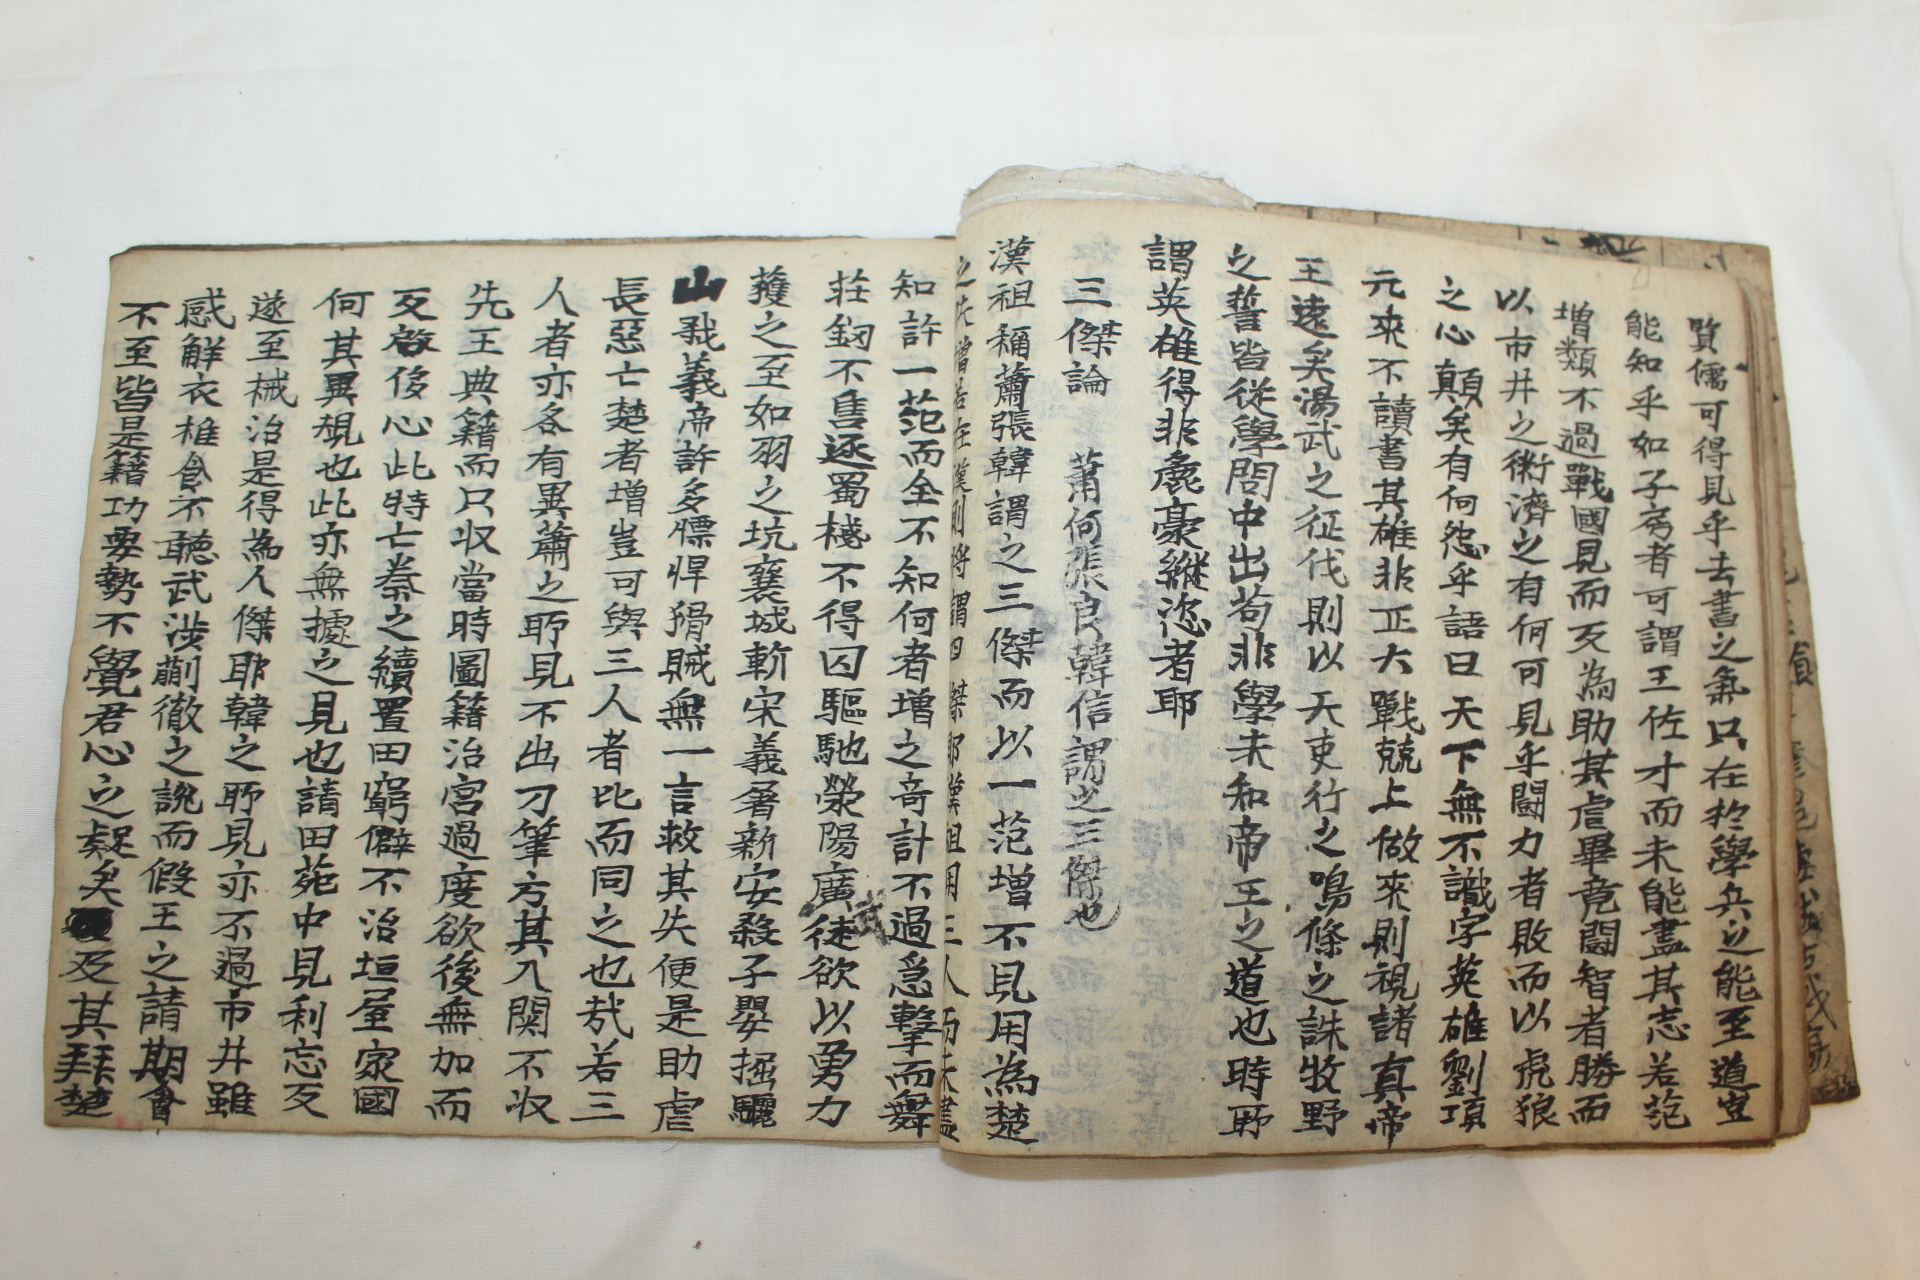 賢儒可得見乎去書之氣只在於學兵之能至道豈
能知乎如子房者可謂王佐才而未能盡其志若范
增類不過戰國見而反為助其虐畢竟鬪智者勝而
以市井之術濟之有何可見乎鬪力者敗而以虎狼
之心顛矣有何怨乎語曰天下無不識字英雄劉項
元來不讀書其雄非正大戰兢上做來則視諸真帝
王遠矣湯武之征伐則以天吏行之鳴條之誅牧野
之誓皆從學問中出苟非學未和帝王之道也時所
謂英雄得非麄豪縱恣者耶
三傑論 蕭何張良韓信謂之三傑也
漢祖稱蕭張韓謂之三傑而以一范增不見用為楚
之失增若在漢則將謂四傑耶漢祖用三人而未盡
知許一范而全不知何者增之奇計不過急擊而舞
莊釰不售逐蜀棧不得囚驅馳滎陽廣武徒欲以勇力
蒦之至如羽之坑襄城斬宋義屠新安殺子嬰掘驪
山弒義帝許多慓悍猾賊無一言救其失便是助虐
長惡亡楚者增豈可與三人者比而同之也哉若三
人者亦各有異蕭之所見不出刀筆方其入關不収
先王典籍而只収當時圖籍治宮過度欲後無加而
反啓侈心此特亡秦之續置田窮僻不治垣屋家國
何其異規也此亦無據之見也請田苑中見利忘反
遂至械治是得為人傑耶韓之所見亦不過市井雖
感解衣推食不聽武涉蒯徹之說而假王之請期會
不至皆是籍功要勢不覺君心之疑矣及其拜楚